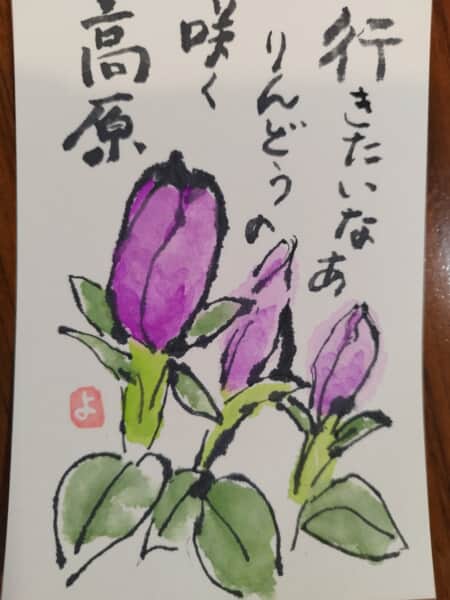 行きたいなあ
りんどうの
咲く
高原
よ